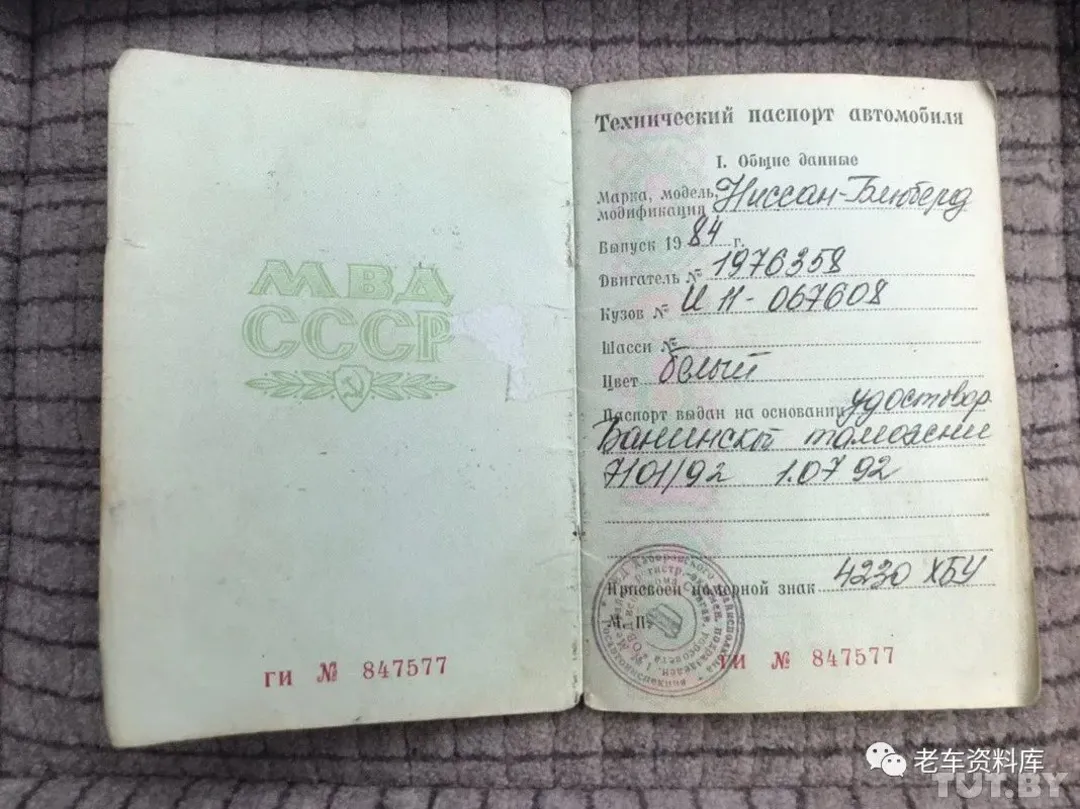 МВД
СССР
ГИ № 847577
Технический паспорт автомобиля
I. Общие данные
Марка, модель,
модификация Ниссан-Блюберд
Выпуск 1984 г.
Двигатель № 1976358
Кузов № И 11-067608
Шасси №
Цвет белый
Паспорт выдан на основании удостовер
Ванинской таможни
7101/92 1.07 92
Присвоен номерной знак 4230 ХБУ
М. П.
ГИ № 847577
老车资料库
TUT.BY